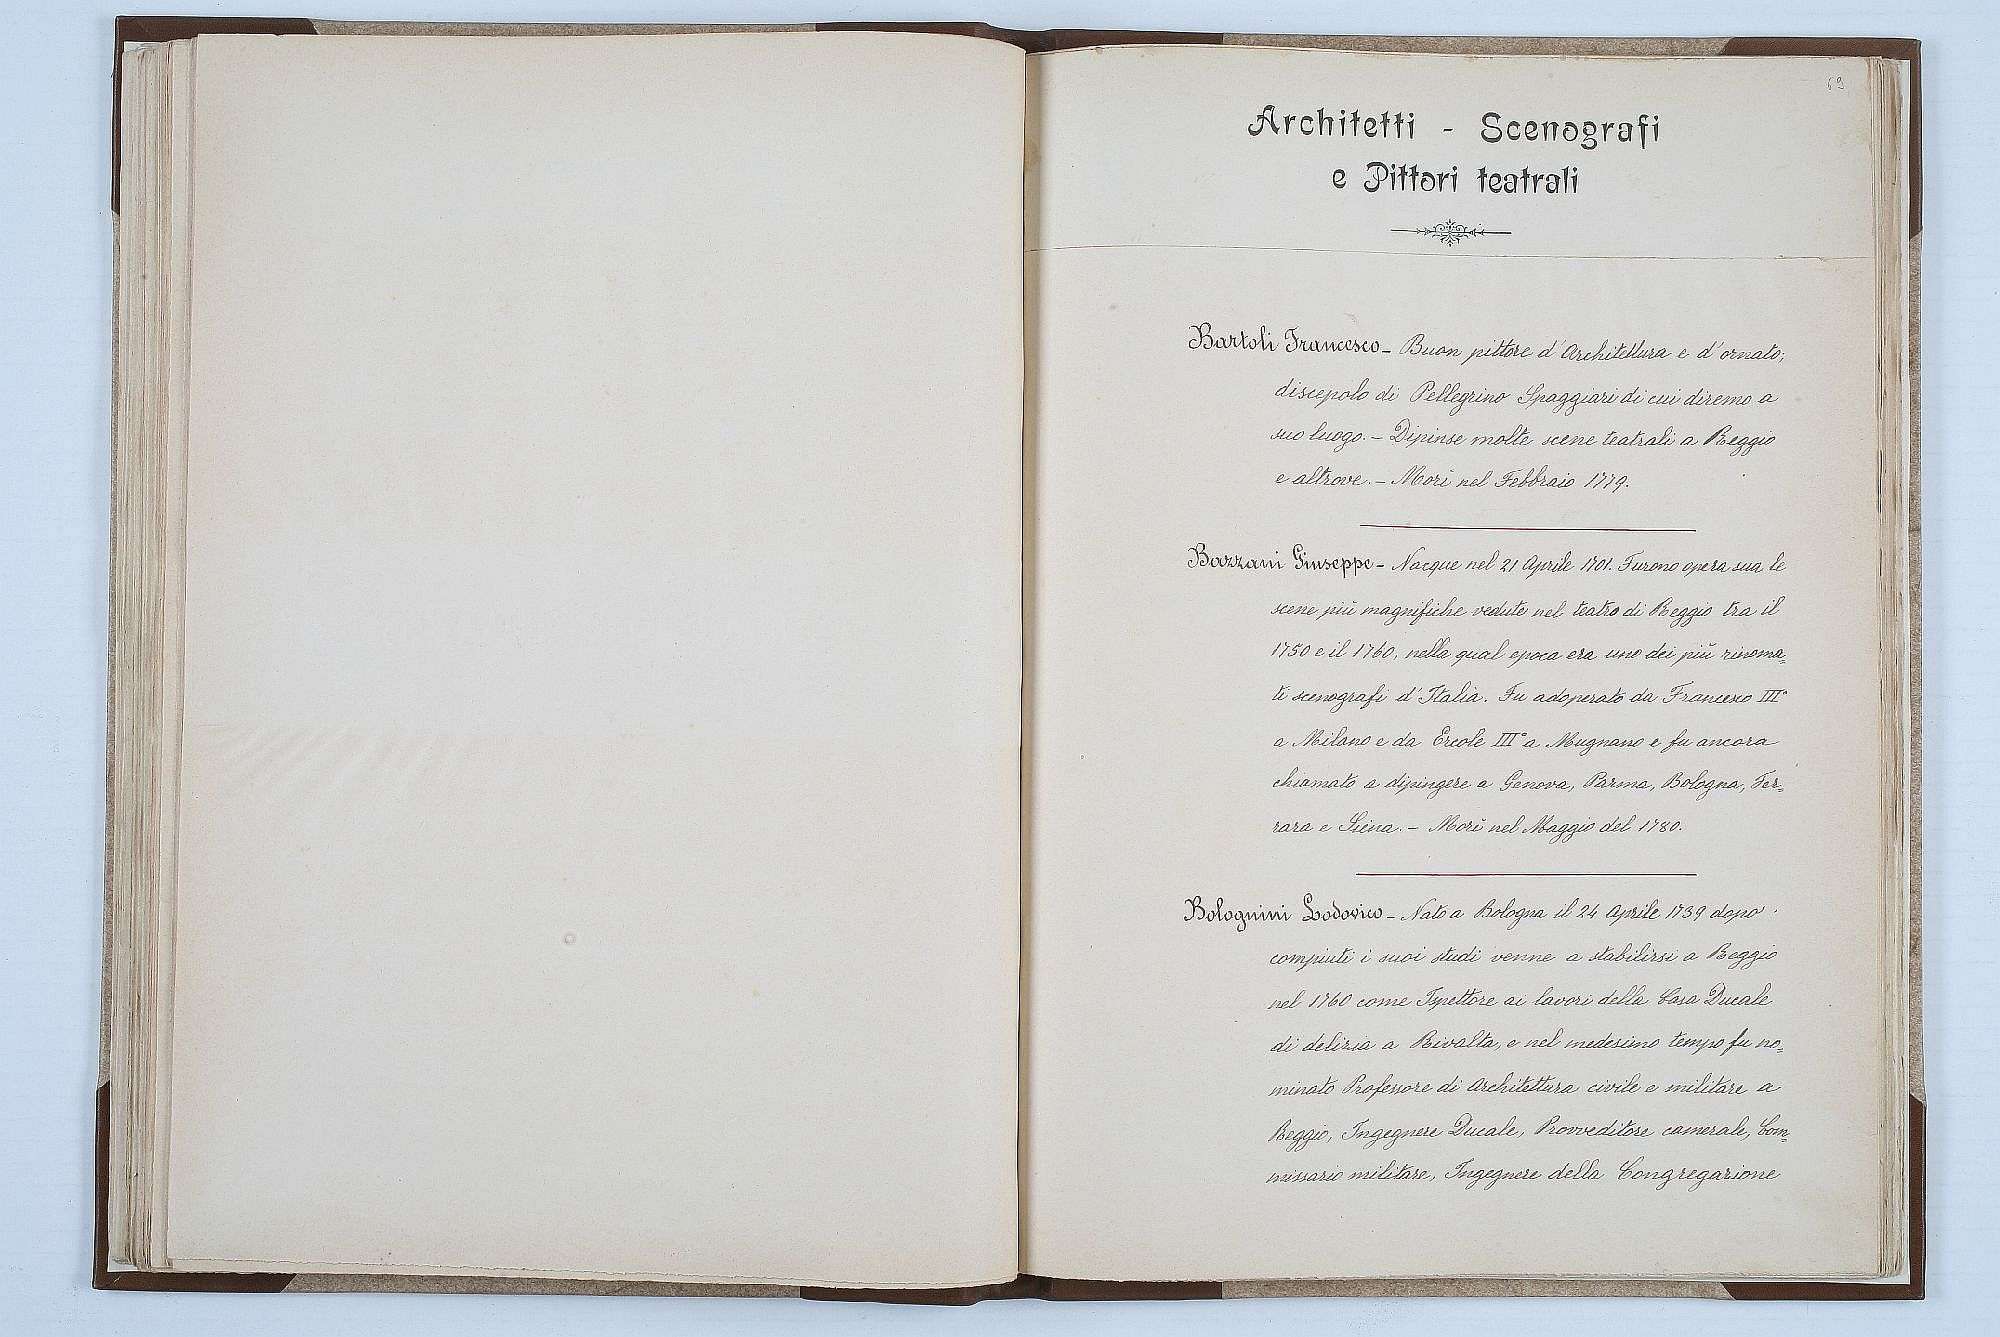 69
Architetti - Scenografi
e Pittori teatrali
Bartoli Francesco - Buon pittore d'Architettura e d'ornato;
discepolo di Pellegrino Spaggiari di cui diremo a
suo luogo. - Dipinse molte scene teatrali a Reggio
e altrove. - Morì nel Febbraio 1779.
Bazzani Giuseppe - Nacque nel 21 Aprile 1701. Furono opera sua le
scene più magnifiche vedute nel teatro di Reggio tra il
1750 e il 1760, nella qual epoca era uno dei più rinoma=
ti scenografi d'Italia. Fu adoperato da Francesco III°
a Milano e da Ercole III° a Mugnano e fu ancora
chiamato a dipingere a Genova, Parma, Bologna, Fer=
rara e Siena. - Morì nel Maggio del 1780.
Bolognini Lodovico - Nato a Bologna il 24 Aprile 1739 dopo
compiuti i suoi studi venne a stabilirsi a Reggio
nel 1760 come Ispettore ai lavori della Casa Ducale
di delizia a Rivalta, e nel medesimo tempo fu no=
minato Professore di Architettura civile e militare a
Reggio, Ingegnere Ducale, Provveditore camerale, Com=
missario militare, Ingegnere della Congregazione